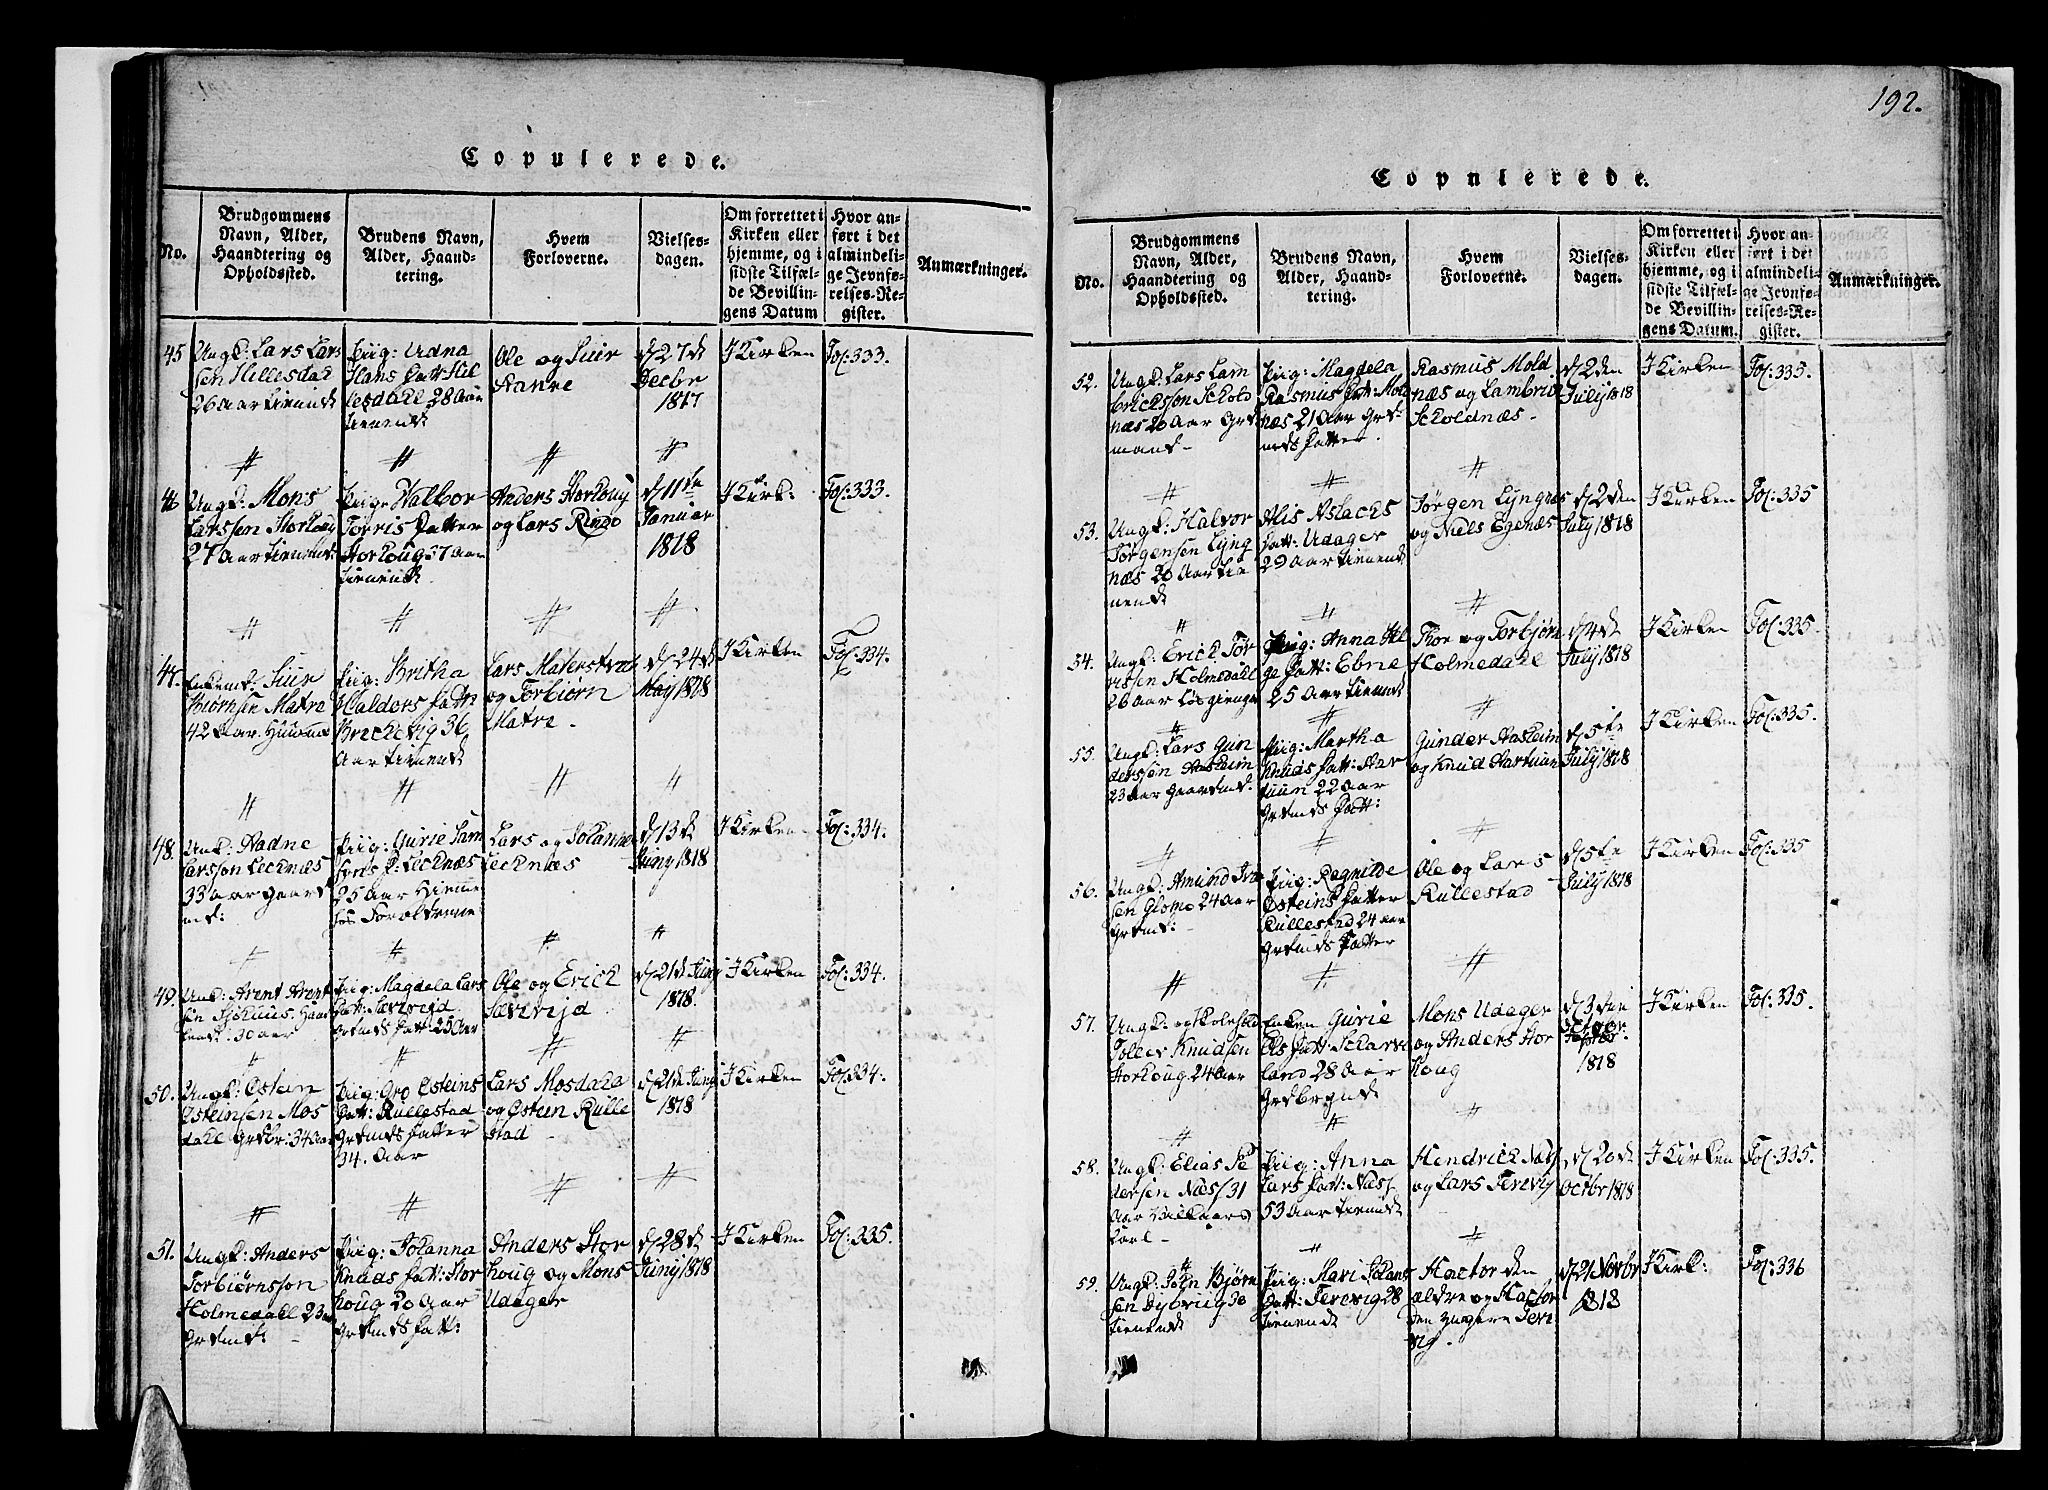 192.
Copulerede.
No.
Brudgommens
Navn, Alder,
Haandtering og
Opholdssted.
Brudens Navn,
Alder, Haand-
tering.
Hvem
Forloverne.
Vielses-
dagen.
Om forrettet i
Kirken eller
hjemme, og i
sidste Tilfæl-
de Bevillin-
gens Datum
Hvor an-
ført i det
almindeli-
ge Jevnfø-
relses-Re-
gister.
Anmærkninger.
45
Ungk: Lars Lar
sen Hillesdahl
26 Aar tienende
Piig: Udna
Hans Datt: Hil
lesdahl 28 Aar
tienende
Ole og Siur
d 27de
Decbr
1817
I Kirken
Fol: 333.
46
Ungk: Mons
Larssen Storhoug
27 Aar tienende
Piige Valbor
Torris Datter
Storhoug 37 Aar
tienende
Anders Storhoug
og Lars
d 11te
Januar
1818
I Kirk:
Fol: 333.
47.
Enkem: Siur
Biørnsen Matre
42 Aar. Huusm
Piig: Britha
Haldors Datt
36
Aar tienende
Lars Materstrat
og Torbiørn
Matre.
d 24de
May 1818
I Kirken
Fol: 334.
48.
Ungk: Aadne
Larsson Lechnæs
33 Aar Gaard
md:
Piig: Gurie Sam
sons D: Lechnæs
25 Aar Hiemme
hos Forældrene
Lars og Johanne
Lechnæs
d 13de
Juny 1818
I Kirken
Fol: 334.
49.
Ungk: Arent Arent
sen 30 Aar
Piig: Magdela Lars
Datt: Særvejd
Grdmds Datt: 25 Aar
Ole og Erich
Særvejd
d 21de Juny
1818.
I Kirken
Fol: 334.
50.
Ungk: Østen
Østeinsen Mos
dahl Grdbr: 34 Aar
Piig: Gro Østeins
Datt: Rullestad
Grdmds Datter
34. Aar
Lars Mosdahl
og Østein Rulle
stad
d 21de Juny
1818
I Kirken
Fol: 334.
51.
Ungk: Anders
Torbiørnsson
Holmedahl 23 Aar
Grdmd:
Piig: Johanna
Knuds Datt: Stor
houg 20 Aar
Grdmds Datt:
Anders Stor
houg og Mons
Udager
d 28de
Juny 1818
I Kirken
Fol: 335.
Copulerede.
No.
Brudgommens
Navn, Alder,
Haandtering og
Opholdssted.
Brudens Navn,
Alder, Haand-
tering.
Hvem
Forloverne.
Vielses-
dagen.
Om forrettet i
Kirken eller
hjemme, og i
sidste Tilfæl-
de Bevillin-
gens Datum.
Hvor an-
ført i det
almindeli-
ge Jevnfø-
relses-Re-
gister.
Anmærkninger.
52.
Ungk: Lars Lam
brichsson Schold
næs 20 Aar Grd
mand
Piig: Magdela
Rasmus Datt: Mold
næs 21 Aar Grd
mds Datter.
Rasmus Mold
næs og Lambrid
Scholdnæs
d 2den
July 1818
I Kirken
Fol: 335.
53.
Ungk: Halvor
Jørgensen Lyng
næs 20 Aar tie
nende
Alis Aslachs
Datt: Udager
29 Aar tienende
Jørgen Lyngnæs
og Niels Egenæs
d 2den
July 1818
I Kirken
Fol: 335
54.
Ungk: Erich Tør
rissen Holmedahl
26 Aar Løsgienger
Piig: Anna Hel
ge Datt: Ebne
25 Aar tienende
Thor og Torbjørn
Holmedahl
d 4de
July 1818
I Kirken
Fol: 335.
55.
Ungk: Lars Gun
derssen Aasheim
23 Aar Gaardmd.
Piig: Martha
Knuds Datt: Har
tuun 22 Aar
Grdmds Datt:
Gunder Aasheim
og Knud Hartuun
d 5te
July 1818
I Kirken
Fol: 335.
56.
Ungk: Amund Iver
sen Glomo 24 Aar
Grdmd:
Piig: Ragnilde
Østeins Datter
Rullestad 24 Aar
Grdmds Datter
Ole og Lars
Rullestad
d 5te
July 1818
I Kirken
Fol: 335
57.
Ungk: og Skolehold
Tollev Knudsen
Storhoug 24 Aar
Enken Gurie
Els Datt: Scharve
land 28 Aar
Mons Udager
og Anders Stor
houg
d 3die
October
1818
I Kirken
Fol: 335.
58.
Ungk: Elias Pe
dersen Næss 31
Aar
Karl
Piig: Anna
Lars Datt: Næss
53 Aar tienende
Hendrich Næss
og Lars Terevig
d 20de
Octbr 1818
I Kirken
Fol: 335.
59.
Ungk: John Bjørn
sen Dybvig 30
tienende
Piig: Mari Johans
Datt: Terevig 28
tienende
Hactor den
ældre og Hactor
den yngere Tere
vig.
d 21 Novbr
1818
I Kirk:
Fol: 336